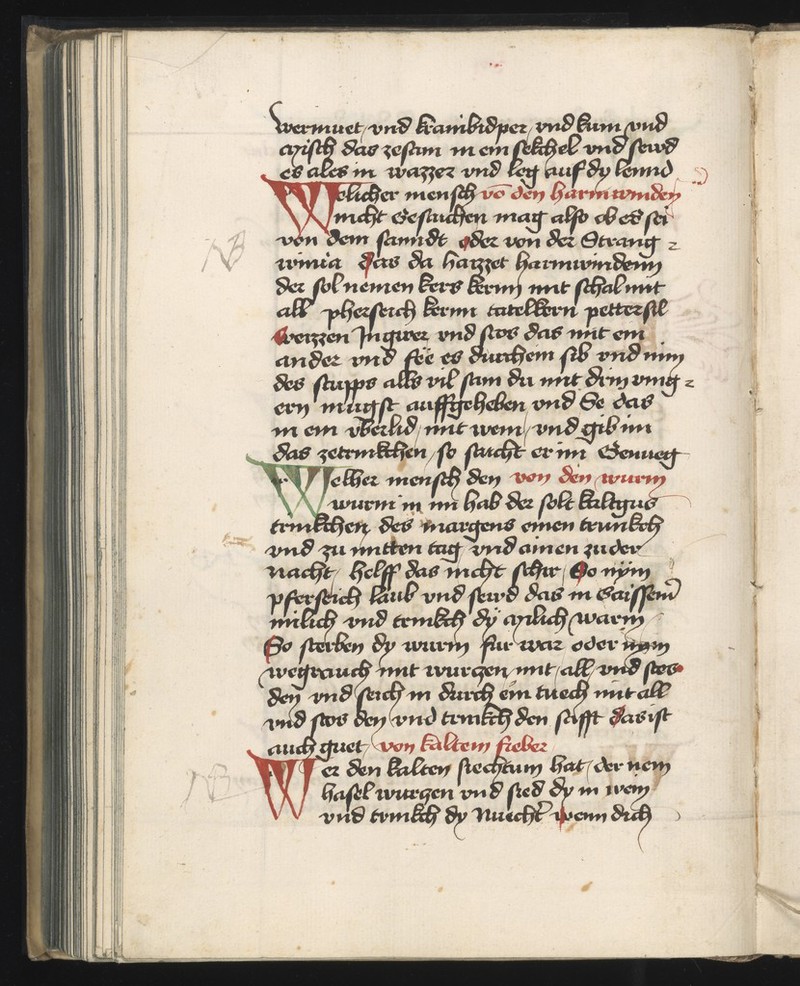 wermuet vnd kranbidper vnd kum vnd
misch das zesam in ein sekchel vnd sewd
es ales in wazzer vnd leg auf dy lennd
Welicher mensch võ den harmwinden
nicht gesaichen mag also ob es sei
von dem sanndt oder von der Strang
winia das da hayzzet harmwindenn
der sol nemen kers kernn mit schal mit
all pherseich kernn tatelkern petersil
weizzen Ingwer vnd stos das mit ein
ander vnd sëe es durchem sib vnd nim
des stupps alls vil sam du mit drin ving
ern mugst auffgeheben vnd Se das
in ein vberlid mit wein vnd gib im
das zetrinkchen so saicht er im Genueg
Welher mensch den von den wurm
wurm in im hab der solt kaltgus
trinkchen des margens einen trunkch
vnd zu mitten tag vnd ainen zu der
nacht helff das nicht schir So nÿm
pferseich laub vnd sewd das in Gaissein
milich vnd trinkch dÿ milich warm
So sterben dy wurm fur war oder nym
wegrauch mit wurzen mit all vnd stos
den vnd seich in durch ein tuech mit all
vnd stos den vnd trinkch den safft das ist
auch guet von kaltem fieber
Wer den kalten siechtum hat der nem
hasel wurzen vnd sied dy in wein
vnd trinkch dy Nuecht̉ wenn dich
NB
NB